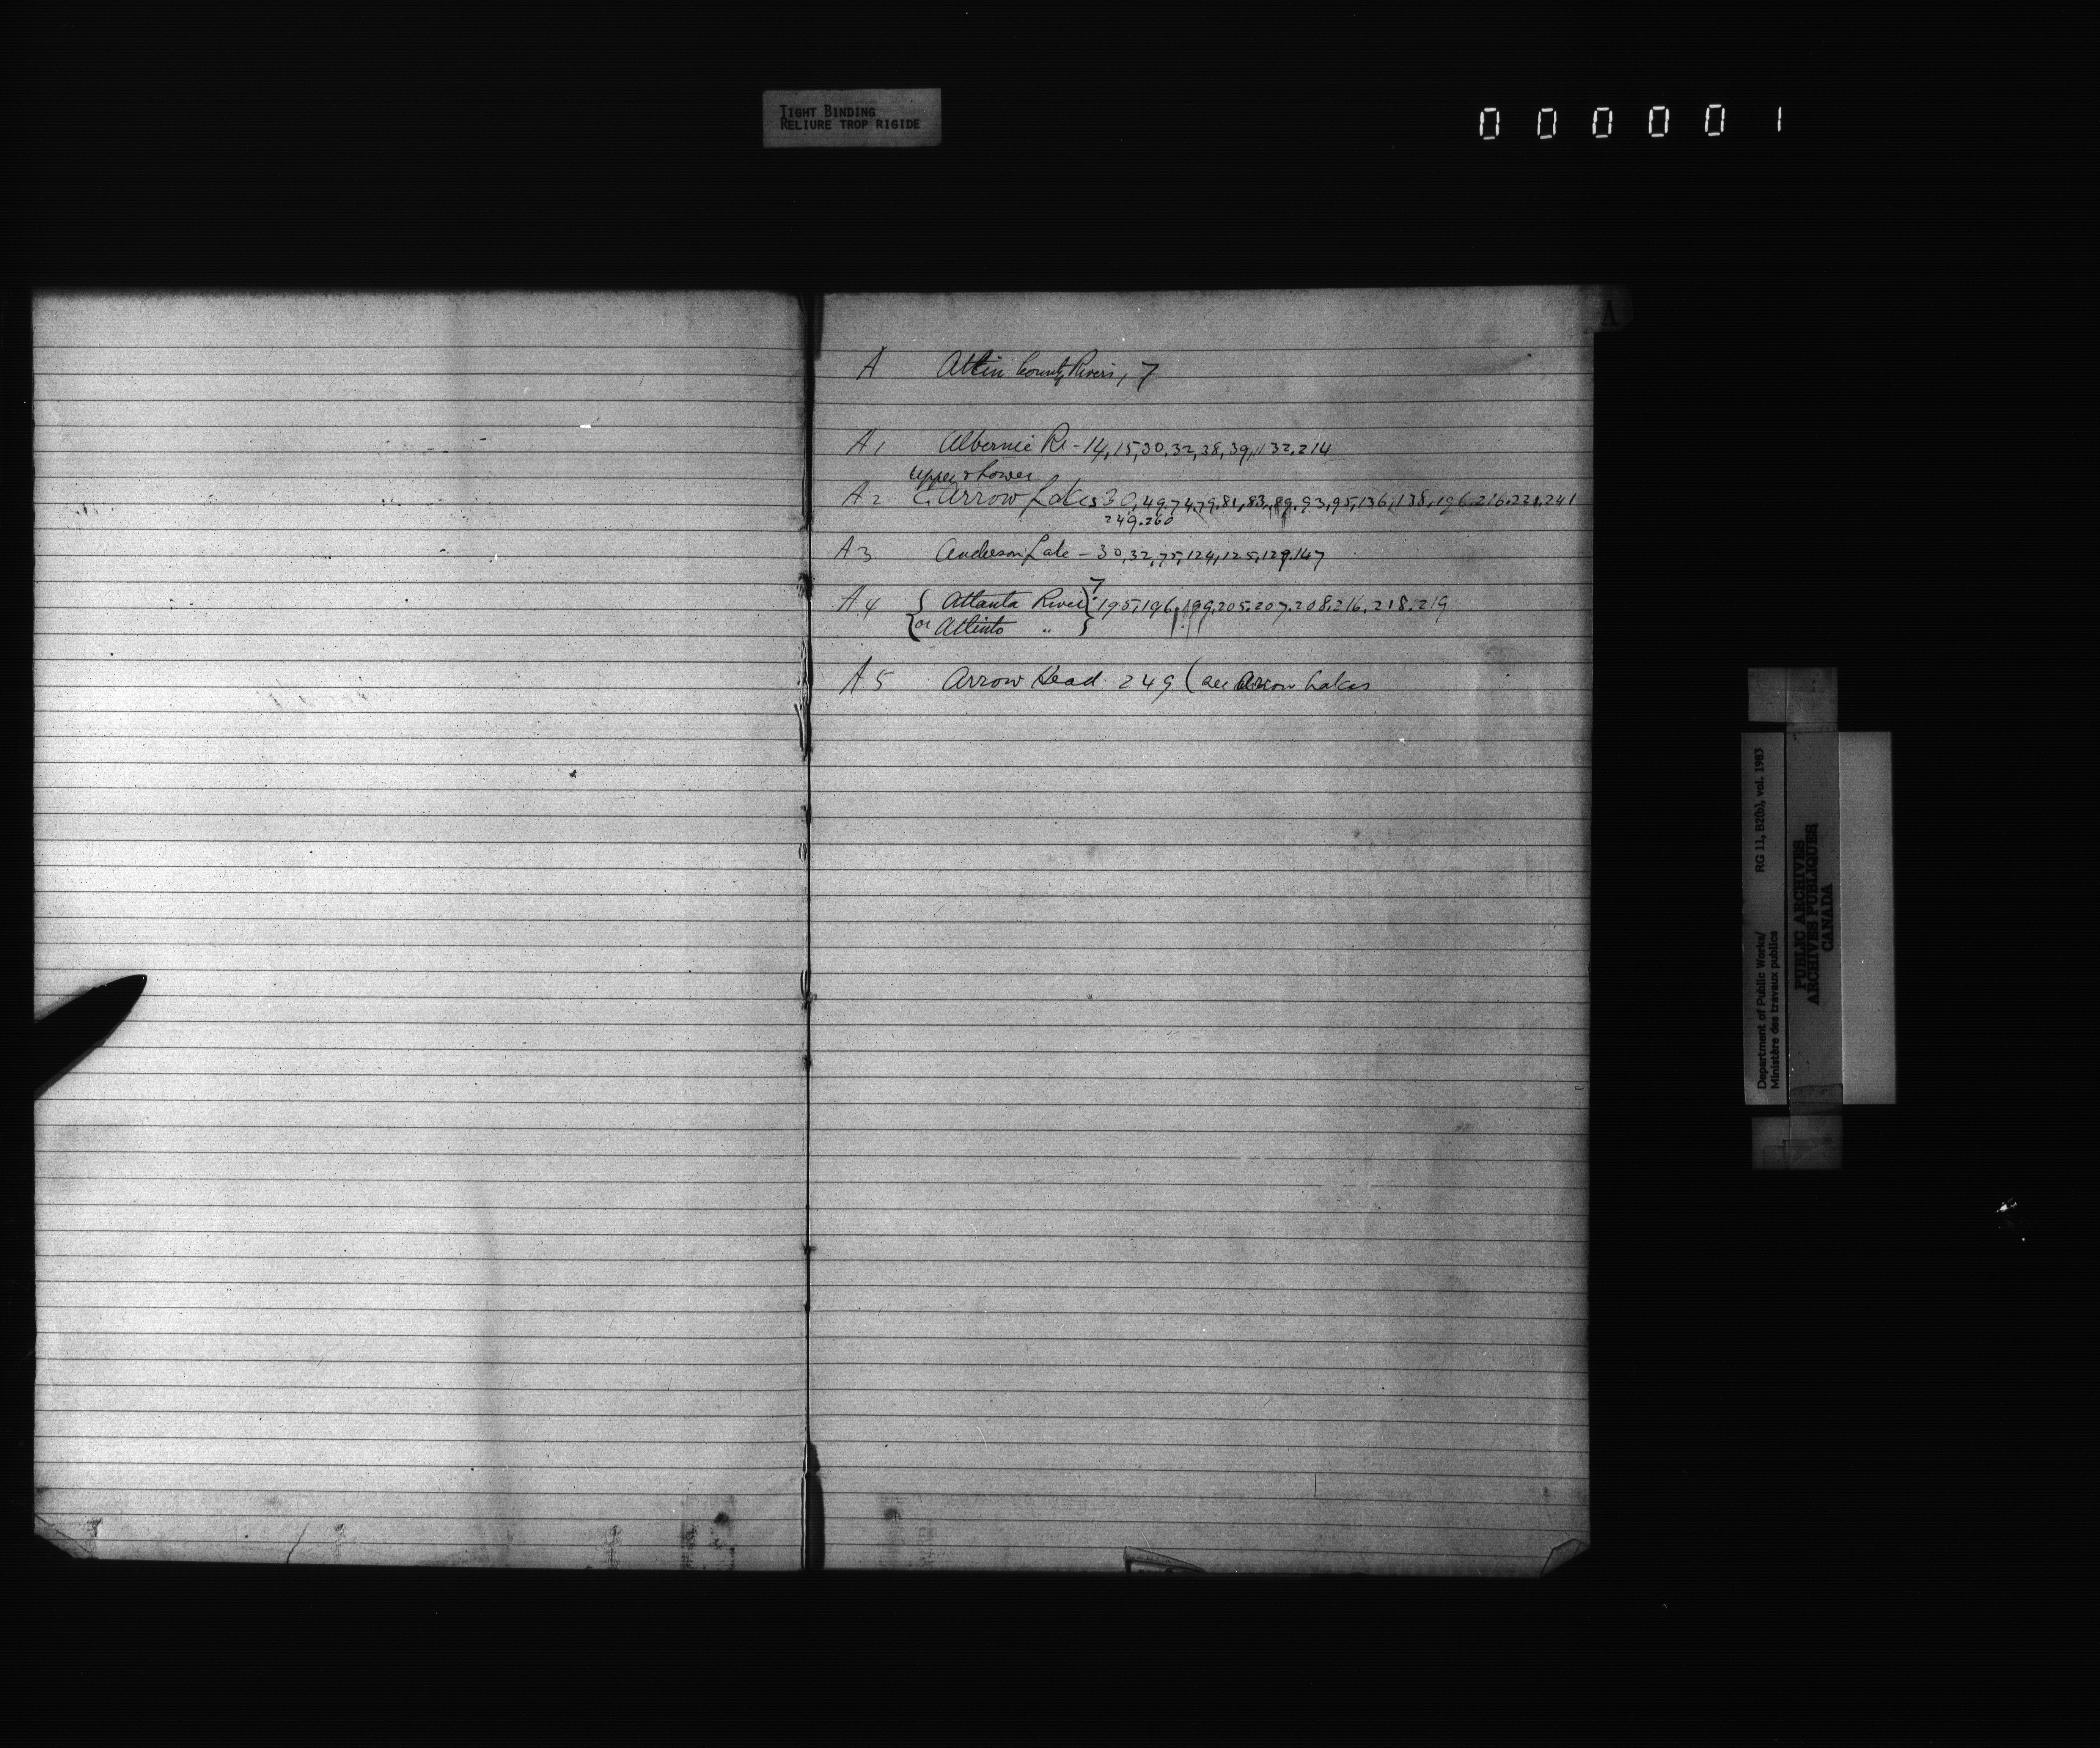 TIGHT BINDING
RELIURE TROP RIGIDE
000001
A
A Atlin County Rivers, 7
A1 Albernie R - 14, 15, 30, 32, 38, 39, 132, 214
Upper & Lower
A2 Arrow Lakes 30, 49, 74, 79, 81, 83, 89, 93, 95, 136, 138, 196, 216, 221, 241
249, 260
A3 Anderson Lake - 30, 32, 75, 124, 125, 129, 147
7
A4 { Atlanta River } 195, 196, 199, 205, 207, 208, 216, 218, 219
{ or Atlinto " }
A5 Arrow Head 249 (see Arrow Lakes
Department of Public Works/ RG 11, B2(b), vol. 1983
Ministère des travaux publics
PUBLIC ARCHIVES
ARCHIVES PUBLIQUES
CANADA